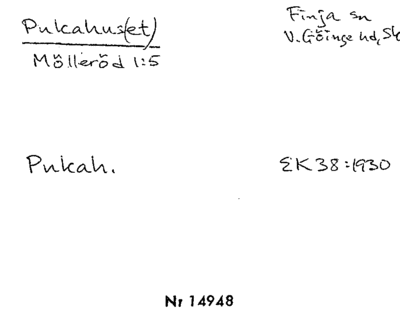 Pukahus(et)
Mölleröd 1:5
Finja sn
V. Göinge hd, Sk
Pukah.
EK 38:1930
Nr 14948